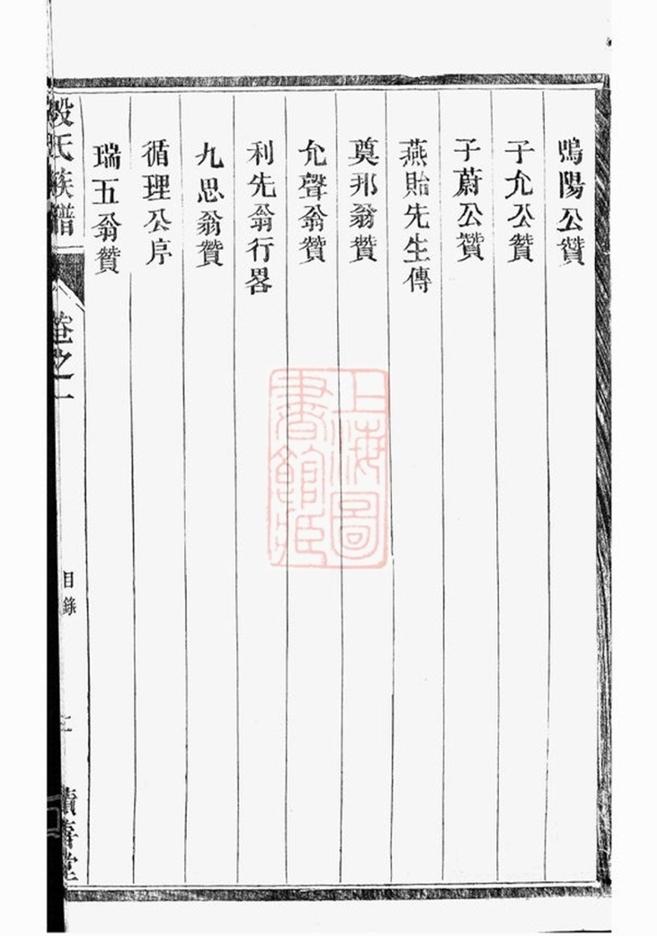 鳴陽公贊
子允公贊
子蔚公贊
燕貽先生傳
奠邦翁贊
允聲翁贊
利先翁行畧
九思翁贊
循理公序
瑞五翁贊
氏族譜
卷之一
目錄
堂
上海圖
書館藏